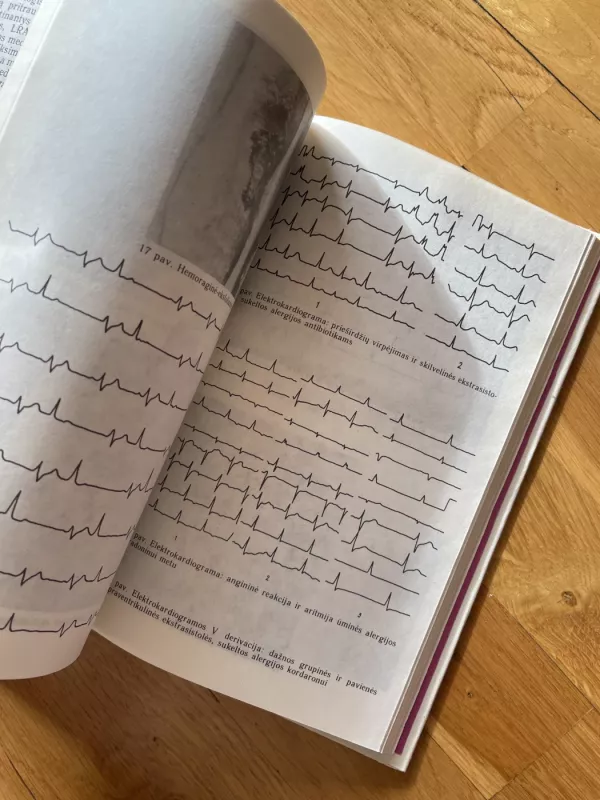 pritrau
tinantys
LRA
17 pav. Hemoraginė
pav. Elektrokardiograma: prieširdžių virpėjimas ir skilvelinės ekstrasisto-
sukeltos alergijos antibiotikams
1
2
pav. Elektrokardiograma: angininė reakcija ir aritmija ūminės alergijos
metu
1
2
3
pav. Elektrokardiogramos V derivacija: dažnos grupinės ir pavienės
ekstrasistolės, sukeltos alergijos kordaronui